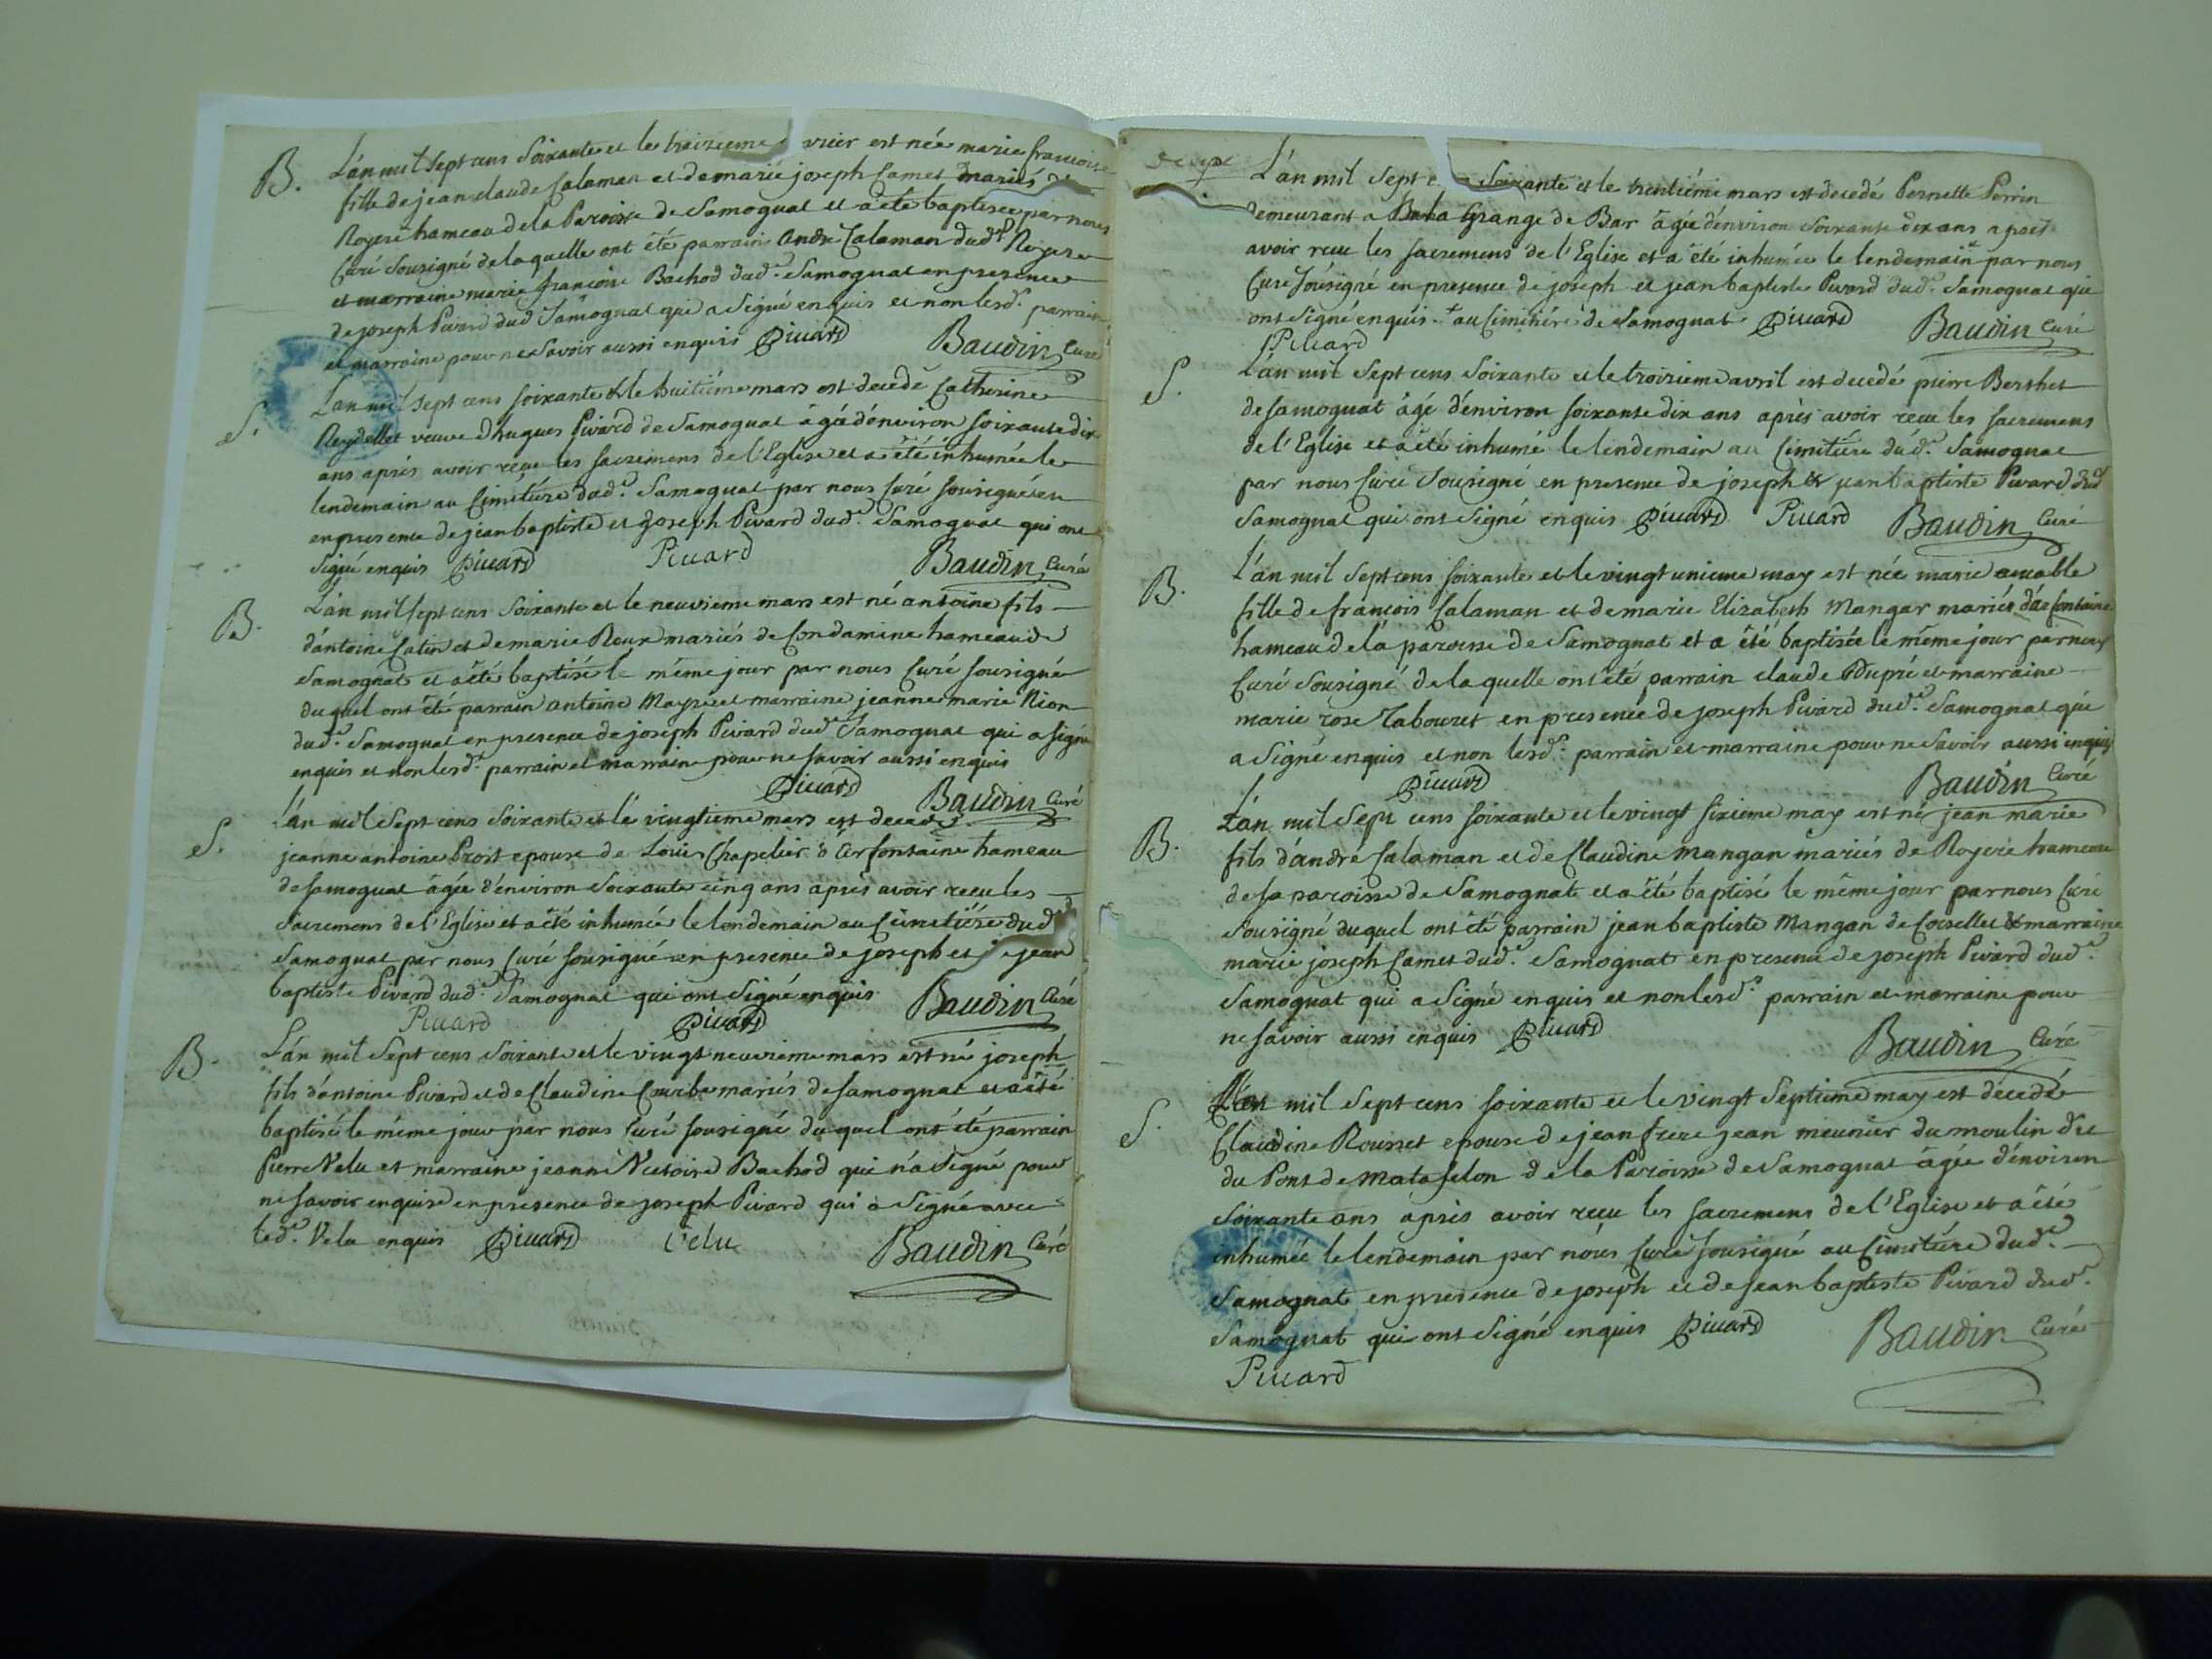 B. L'an mil sept cens soixante et le treizieme vrier est née marie francoise
fille de jean claude Calaman et de marie joseph Camet mariés de
Royere hameau de la Paroisse de Samognat et a été baptisée par nous
Curé sousigné de laquelle ont été parrain andre Calaman dud.t Royere
et marraine marie francoise Bachod dud.t Samognat en presence
de joseph Pivard dud Samognat qui a signé enquis et non lesd.t parrain
et marraine pour ne savoir aussi enquis Pivard Baudin Curé
S. L'an mil sept cens soixante et le huitiéme mars est decedé Catherine
Reydellet veuve d'hugues Pivard de Samognat agée d'environ soixante dix
ans aprés avoir reçue les sacremens de l'Eglise et a été inhumée le
lendemain au Cimetiére dud.t Samognat par nous Curé sousigné en
en presence de jean baptiste et joseph Pivard dud.t Samognat qui ont
signé enquis Pivard Pivard Baudin Curé
B. L'an mil sept cens soixante et le neuvieme mars est né antoine fils
d'antoine Catin et de marie Roux mariés de Condamine hameau de
Samognat et a été baptisé le même jour par nous Curé sousigné
duquel ont été parrain antoine Mayre et marraine jeanne marie Nion
dud.t Samognat en presence de joseph Pivard dud.t Samognat qui a signé
enquis et non lesd.t parrain et marraine pour ne savoir aussi enquis
Pivard Baudin Curé
S. L'an mil sept cens soixante et le vingtieme mars est decedée
jeanne antoine Prost epouse de Louis Chapelier d Cerfontaine hameau
de Samognat âgée d'environ soixante cinq ans aprés avoir reçu les
sacremens de l'Eglise et a été inhumée le lendemain au Cimetiére dud.t
Samognat par nous Curé sousigné en presence de joseph et de jean
baptiste Pivard dud.t Samognat qui ont signé enquis Baudin Curé
Pivard Pivard
B. L'an mil sept cens soixante et le vingt neuvieme mars est né joseph
fils d'antoine Pivard et de Claudine mariés de Samognat et a été
baptisé le même jour par nous Curé sousigné duquel ont été parrain
Pierre Velu et marraine jeanne Victoire Bachod qui n'a signé pour
ne savoir enquise en presence de joseph Pivard qui a signé avec
led.t Velu enquis Pivard Velu Baudin Curé
L'an mil sept c soixante et le trentiéme mars est decedé Pernette Perrin
demeurant a la Grange de Bar âgée d'environ soixante dix ans aprés
avoir reçu les sacremens de l'Eglise et a été inhumée le lendemain + par nous
Curé sousigné en presence de joseph et jean baptiste Pivard dud.t Samognat qui
ont signé enquis. + au Cimetiére de Samognat Pivard Baudin Curé
Pivard
S. L'an mil sept cens soixante et le troisieme avril est decedé pierre Berthet
de Samognat âgé d'environ soixante dix ans aprés avoir reçu les sacremens
de l'Eglise et a été inhumé le lendemain au Cimetiére dud.t Samognat
par nous Curé sousigné en presence de joseph & jean baptiste Pivard dud
Samognat qui ont signé enquis Pivard Pivard Baudin Curé
B. L'an mil sept cens soixante et le vingt unieme may est née marie amable
fille de francois Calaman et de marie Elizabeth Mangar mariés
hameau de la paroisse de Samognat et a été baptisée le même jour par nous
Curé sousigné de laquelle ont été parrain claude Dupré et marraine
marie rose Tabouret en presence de joseph Pivard dud.t Samognat qui
a signé enquis et non lesd.t parrain et marraine pour ne savoir aussi enquis
Pivard Baudin Curé
B. L'an mil sept cens soixante et le vingt sixieme may est né jean marie
fils d'andré Calaman et de Claudine Mangan mariés de Royere hameau
de la paroisse de Samognat et a été baptisé le même jour par nous Curé
sousigné duquel ont été parrain jean baptiste Mangan de Coiselles & marraine
marie joseph Camet dud.t Samognat en presence de joseph Pivard dud.t
Samognat qui a signé enquis et non lesd.t parrain et marraine pour
ne savoir aussi enquis Pivard Baudin Curé
S. L'an mil sept cens soixante et le vingt septieme may est décedé
Claudine Rousset epouse de jean frere jean meunier du moulin dit
du Pont de Matafelon de la Paroisse de Samognat âgée d'environ
soixante ans aprés avoir reçu les sacremens de l'Eglise et a été
inhumée le lendemain par nous Curé sousigné au Cimetiére dud.t
Samognat en presence de joseph et de jean baptiste Pivard dud.t
Samognat qui ont signé enquis Pivard Baudin Curé
Pivard